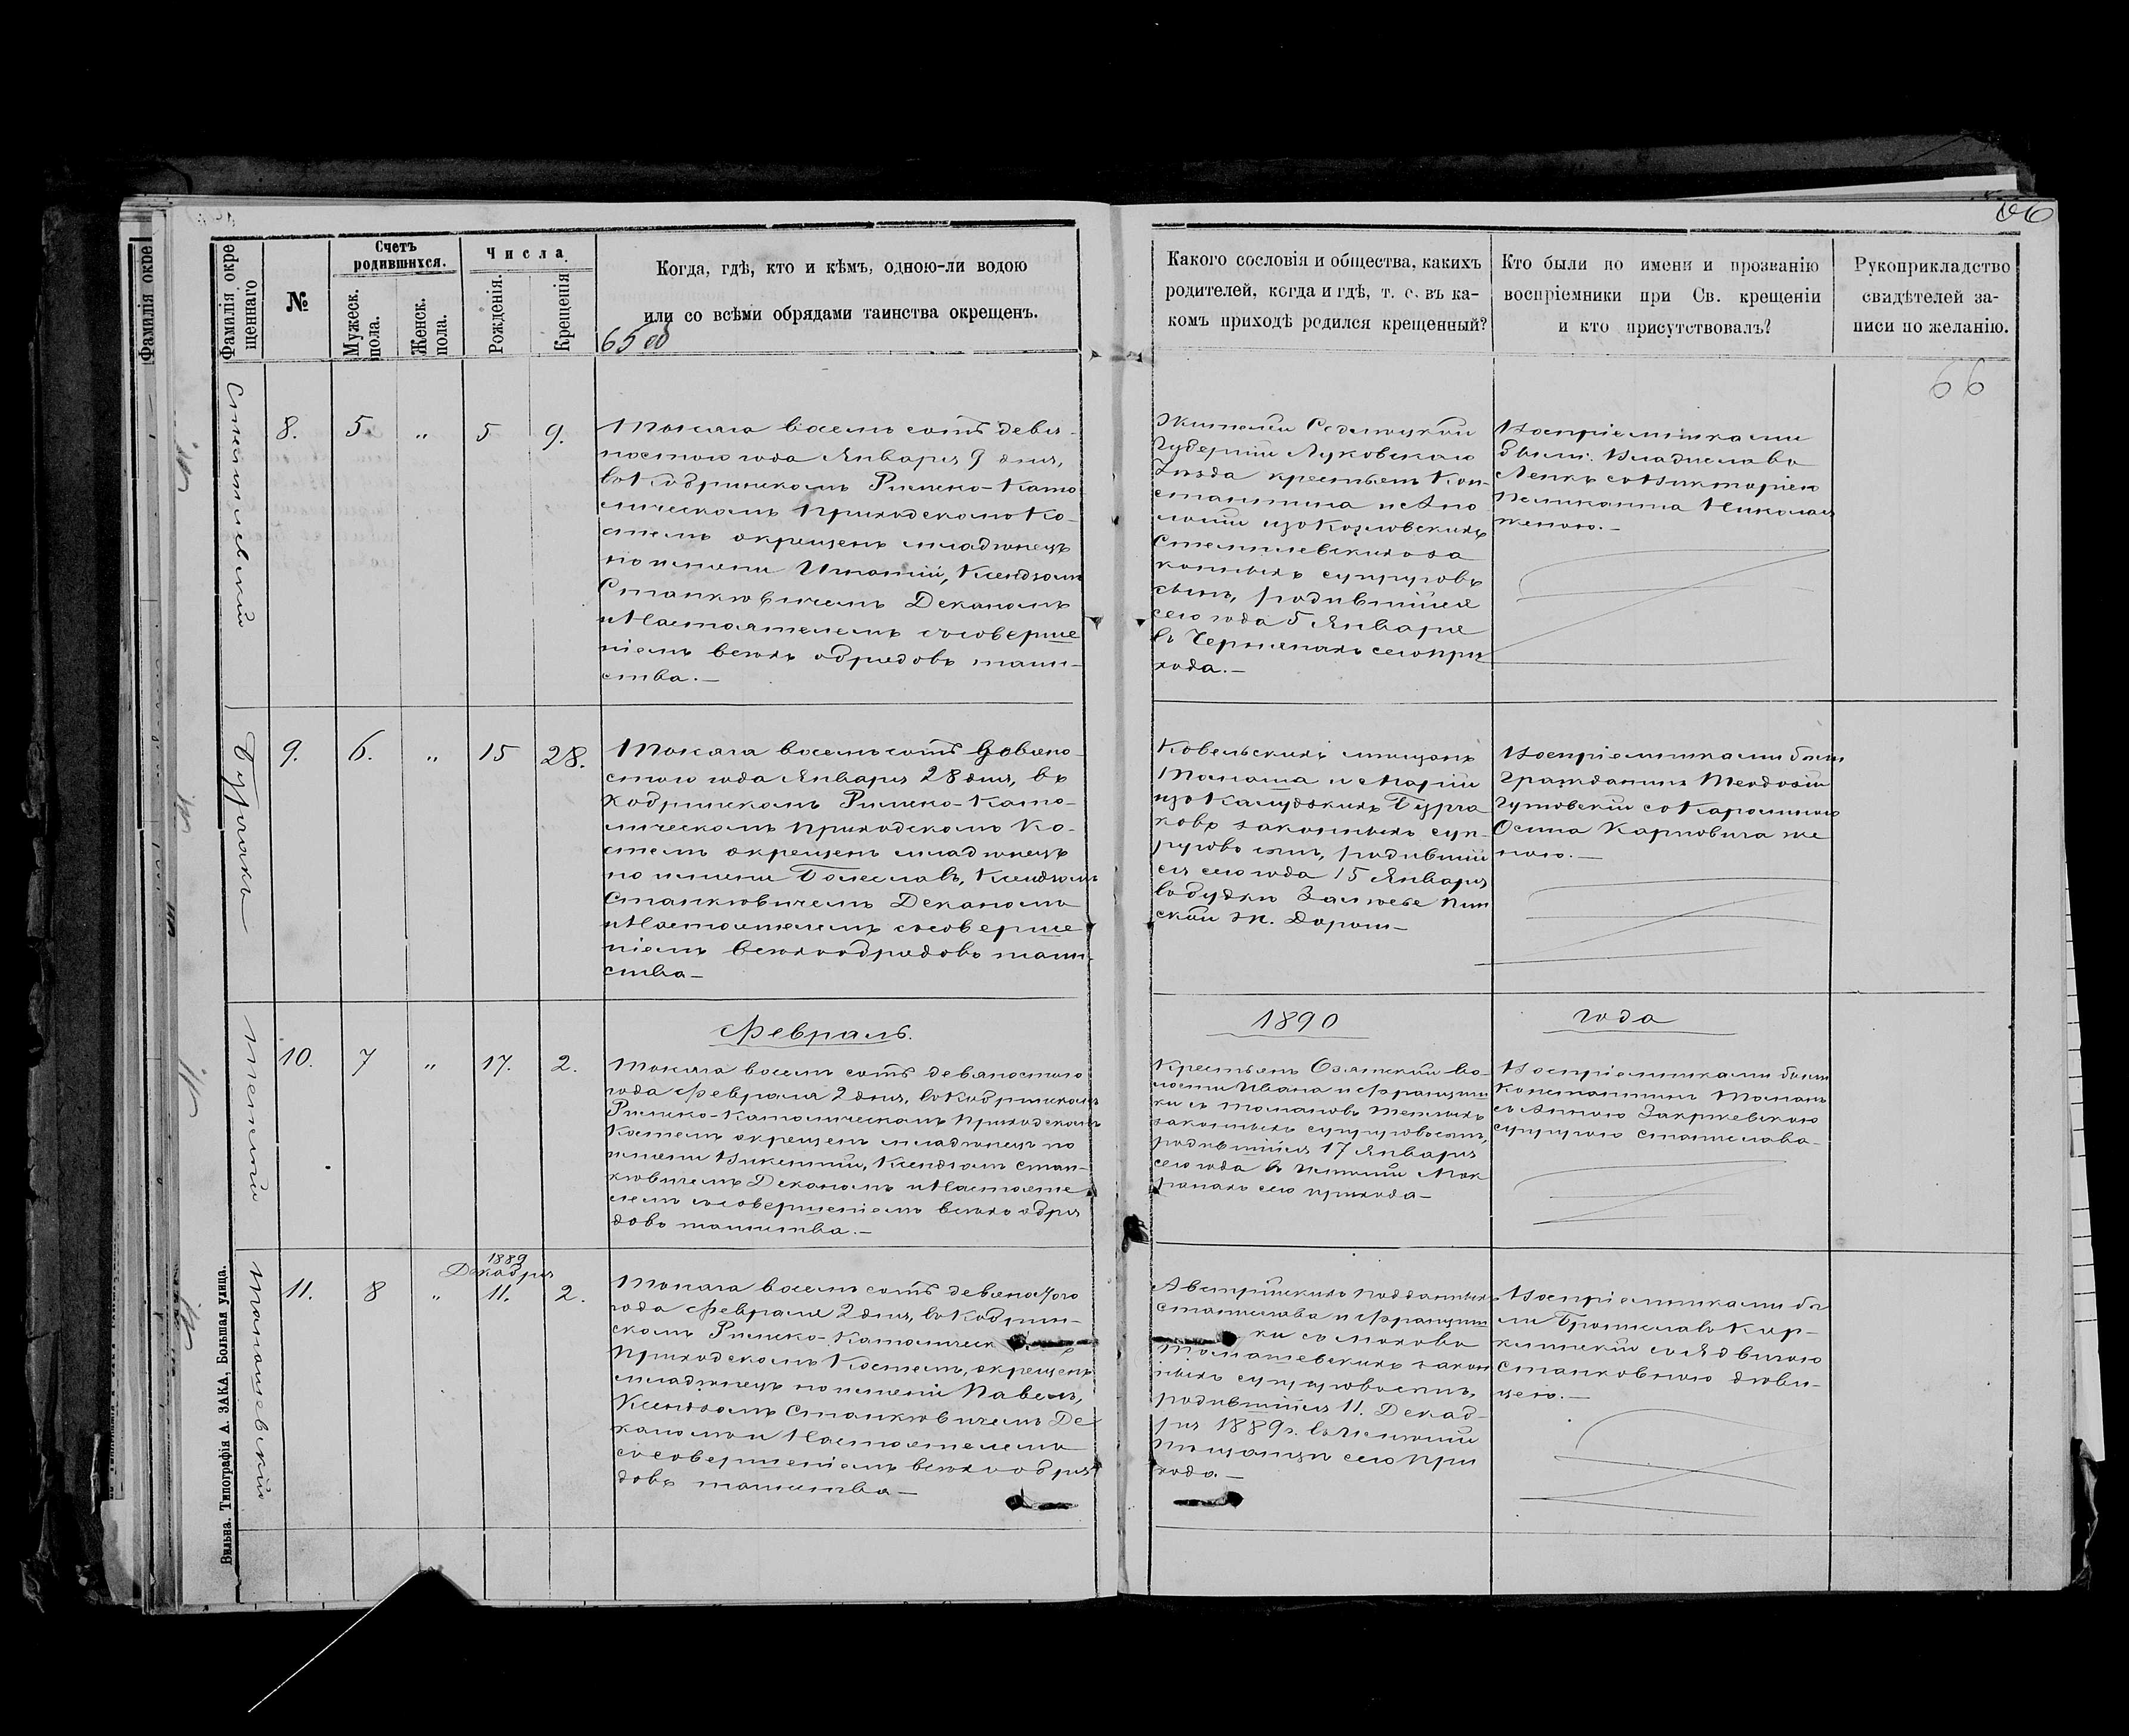 66
Фамилія окре
Фамилія окре
щеннаго
№
Счетъ
родившихся.
Мужеск.
пола.
Женск.
пола.
Числа.
Рожденія.
Крещенія
Когда, гдѣ, кто и кѣмъ, одною-ли водою
или со всѣми обрядами таинства окрещенъ.
65 об
Какого сословія и общества, какихъ
родителей, когда и гдѣ, т. е. въ ка-
комъ приходѣ родился крещенный?
Кто были по имени и прозванію
воспріемники при Св. крещеніи
и кто присутствовалъ?
Рукоприкладство
свидѣтелей за-
писи по желанію.
66
8.
5
"
5
9.
Тысяча восемь сотъ девя-
ностого года Января 9 дня,
въ Кобринскомъ Римско-Като
лическомъ Приходскомъ Ко-
стелѣ окрещенъ младенецъ
по имени Ксендзомъ
Станкевичемъ Деканомъ
и Настоятелемъ съ соверше
ніемъ всѣхъ обрядовъ таин-
ства.—
Жители Седлецкой
Губерніи Луковскаго
Уѣзда крестьянъ Кон-
стантина и Апо
лоніи изъ Козловскихъ
за
конныхъ супруговъ
сынъ, родившійся
сего года 5 Января
въ сего при
хода.—
Воспріемниками
были: Владиславъ
съ Викторіею
Николая
женою.—
Бурчакъ
9.
6.
"
15
28.
Тысяча восемь сотъ девяно-
стого года Января 28 дня, въ
Кобринскомъ Римско-Като-
лическомъ Приходскомъ Ко-
стелѣ окрещенъ младенецъ
по имени Болеславъ, Ксендзомъ
Станкевичемъ Деканомъ
и Настоятелемъ съ соверше
ніемъ всѣхъ обрядовъ таин-
ства—
Ковельскихъ мѣщанъ
Томаша и Маріи
изъ Бурча
ковъ законныхъ суп-
руговъ сынъ, родившій
ся сего года 15 Января
въ будкѣ Пин
ской ж. Дороги—
Воспріемниками были
гражданинъ Теодозій
Гутовскій съ Каролиною
Осипа Карповича же
ною.—
Февраль.
1890
года
10.
7
"
17.
2.
Тысяча восемь сотъ девяностого
года Февраля 2 дня, въ Кобринскомъ
Римско-Католическомъ Приходскомъ
Костелѣ окрещенъ младенецъ по
имени Викентій, Ксендзомъ Стан-
кевичемъ Деканомъ и Настояте
лемъ съ совершеніемъ всѣхъ обря
довъ таинства.—
Крестьянъ во-
лости Ивана и Францишки
съ законныхъ супруговъ сынъ,
родившійся 17 Января
сего года въ имѣніи Мок
ранахъ сего прихода—
Воспріемниками были
Константинъ Томанъ
съ Анною Закржевскою
супругою Станислава—
Томашевскій
11.
8
"
1889
Декабря
11.
2.
Тысяча восемь сотъ девяностого
года Февраля 2 дня, въ Кобрин-
скомъ Римско-Католическ
Приходскомъ Костелѣ, окрещенъ
младенецъ по имени Павелъ,
Ксендзомъ Станкевичемъ Де
каномъ и Настоятелемъ
съ совершеніемъ всѣхъ обря
довъ таинства—
Австрійскихъ подданныхъ
Станислава и Францишки
Томашевскихъ закон
ныхъ супруговъ сынъ,
родившійся 11. Декаб-
ря 1889 г. въ имѣніи
сего при
хода.—
Воспріемниками бы
ли Брониславъ
съ Ядвигою
Станковною дѣви-
цею.—
Вильна. Типографія А. ЗАКА, Большая улица.